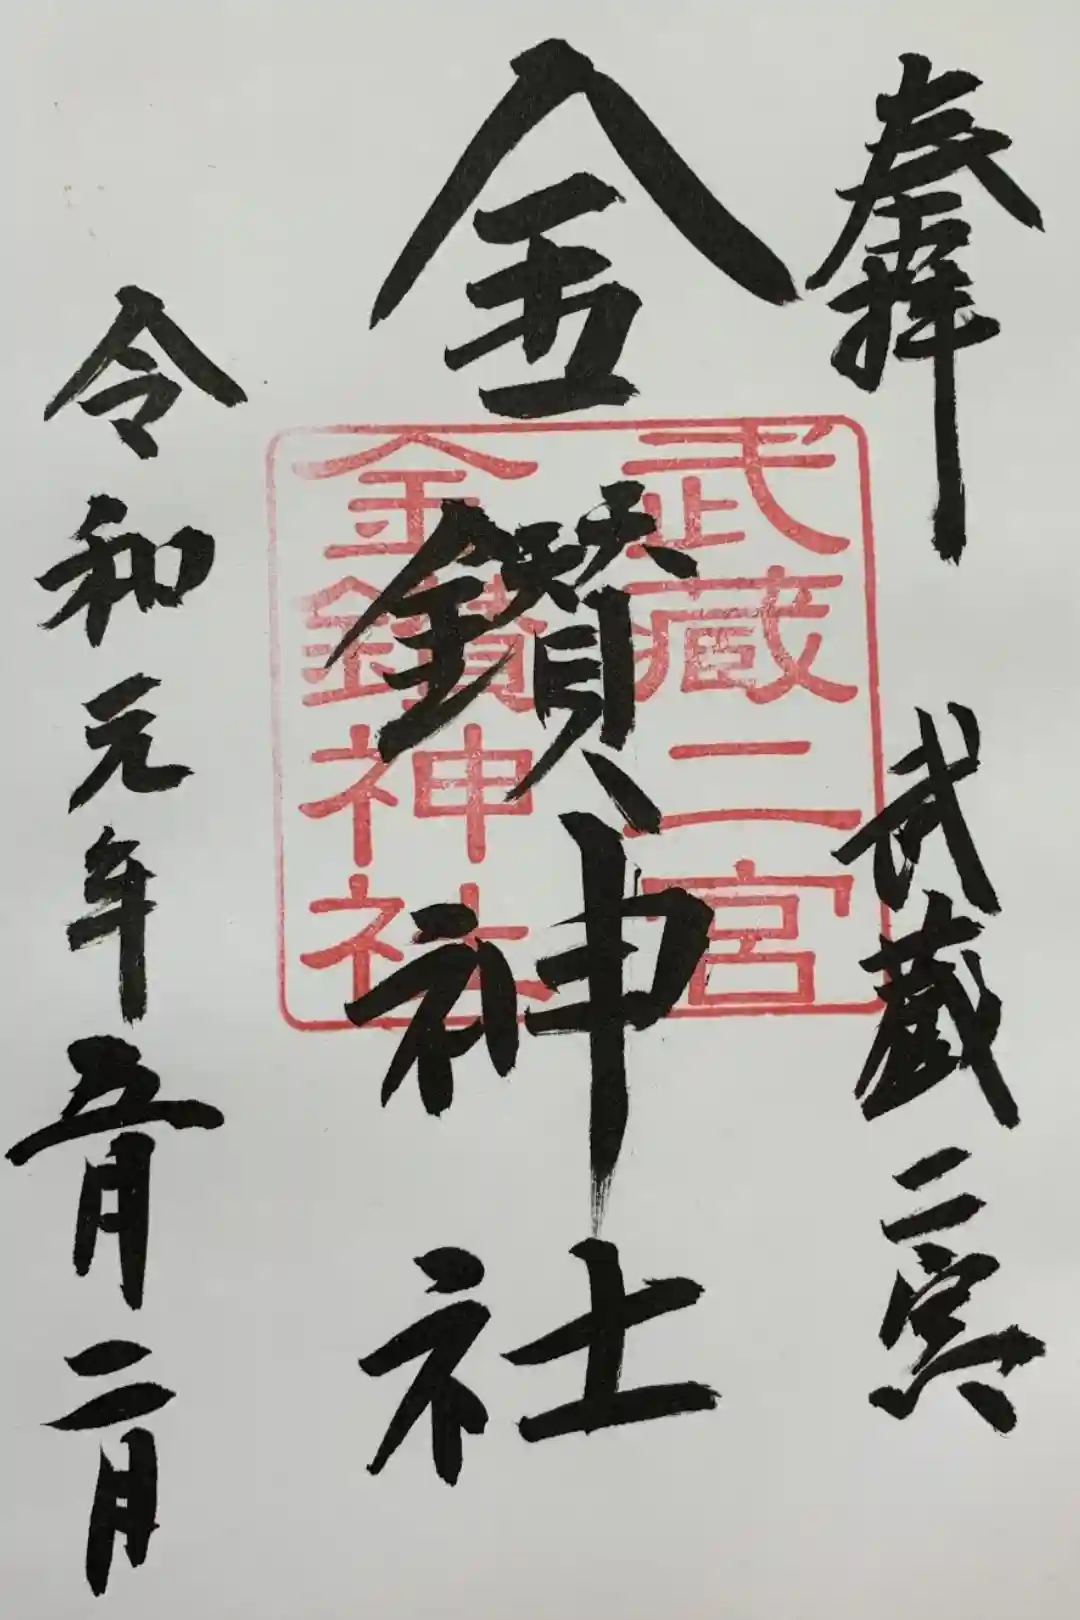 奉拝
武蔵二宮
金鑚神社
武蔵二宮
金鑚神社
令和元年五月二日